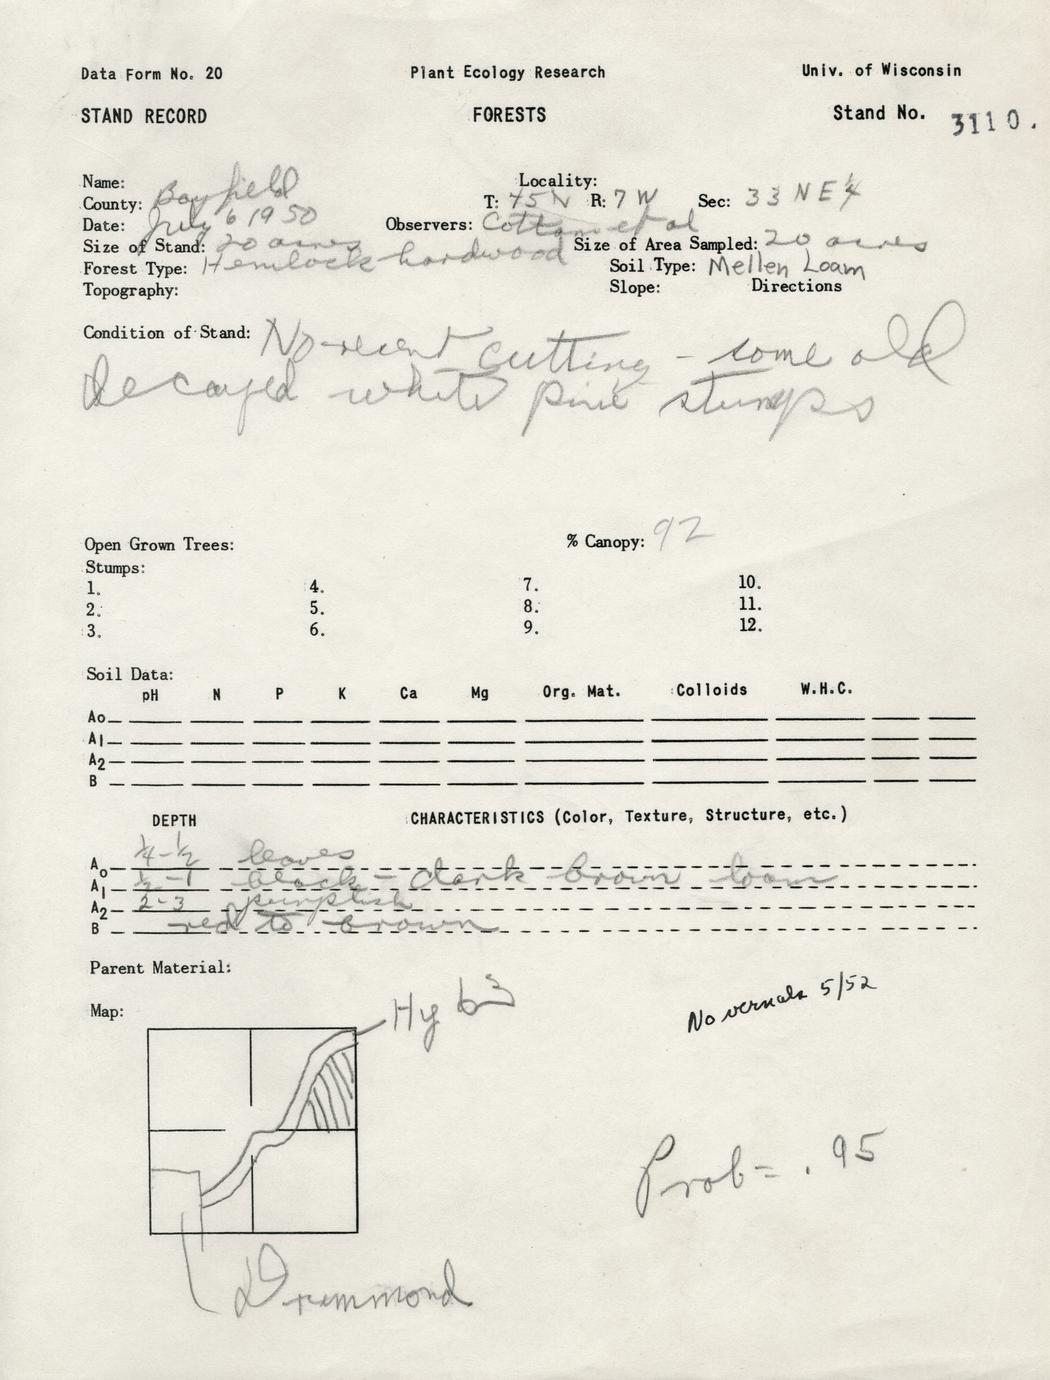 Data Form No. 20 Plant Ecology Research Univ. of Wisconsin
STAND RECORD FORESTS Stand No. 3110.
Name: Locality:
County: Bayfield T: 45N R: 7W Sec: 33 NE¼
Date: July 6 1950 Observers: Cottam et al
Size of Stand: 20 acres Size of Area Sampled: 20 acres
Forest Type: Hemlock-hardwood Soil Type: Mellen Loam
Topography: Slope: Directions
Condition of Stand: No recent cutting - some old
decayed white pine stumps
Open Grown Trees: % Canopy: 92
Stumps:
1. 4. 7. 10.
2. 5. 8. 11.
3. 6. 9. 12.
Soil Data:
pH N P K Ca Mg Org. Mat. Colloids W.H.C.
Ao
A1
A2
B
DEPTH CHARACTERISTICS (Color, Texture, Structure, etc.)
Ao ¼-½ leaves
A1 ½-1 black - dark brown loam
A2 2-3 purplish
B red to brown
Parent Material:
Map:
Hy 63
No vernals 5/52
Prob = .95
Drummond